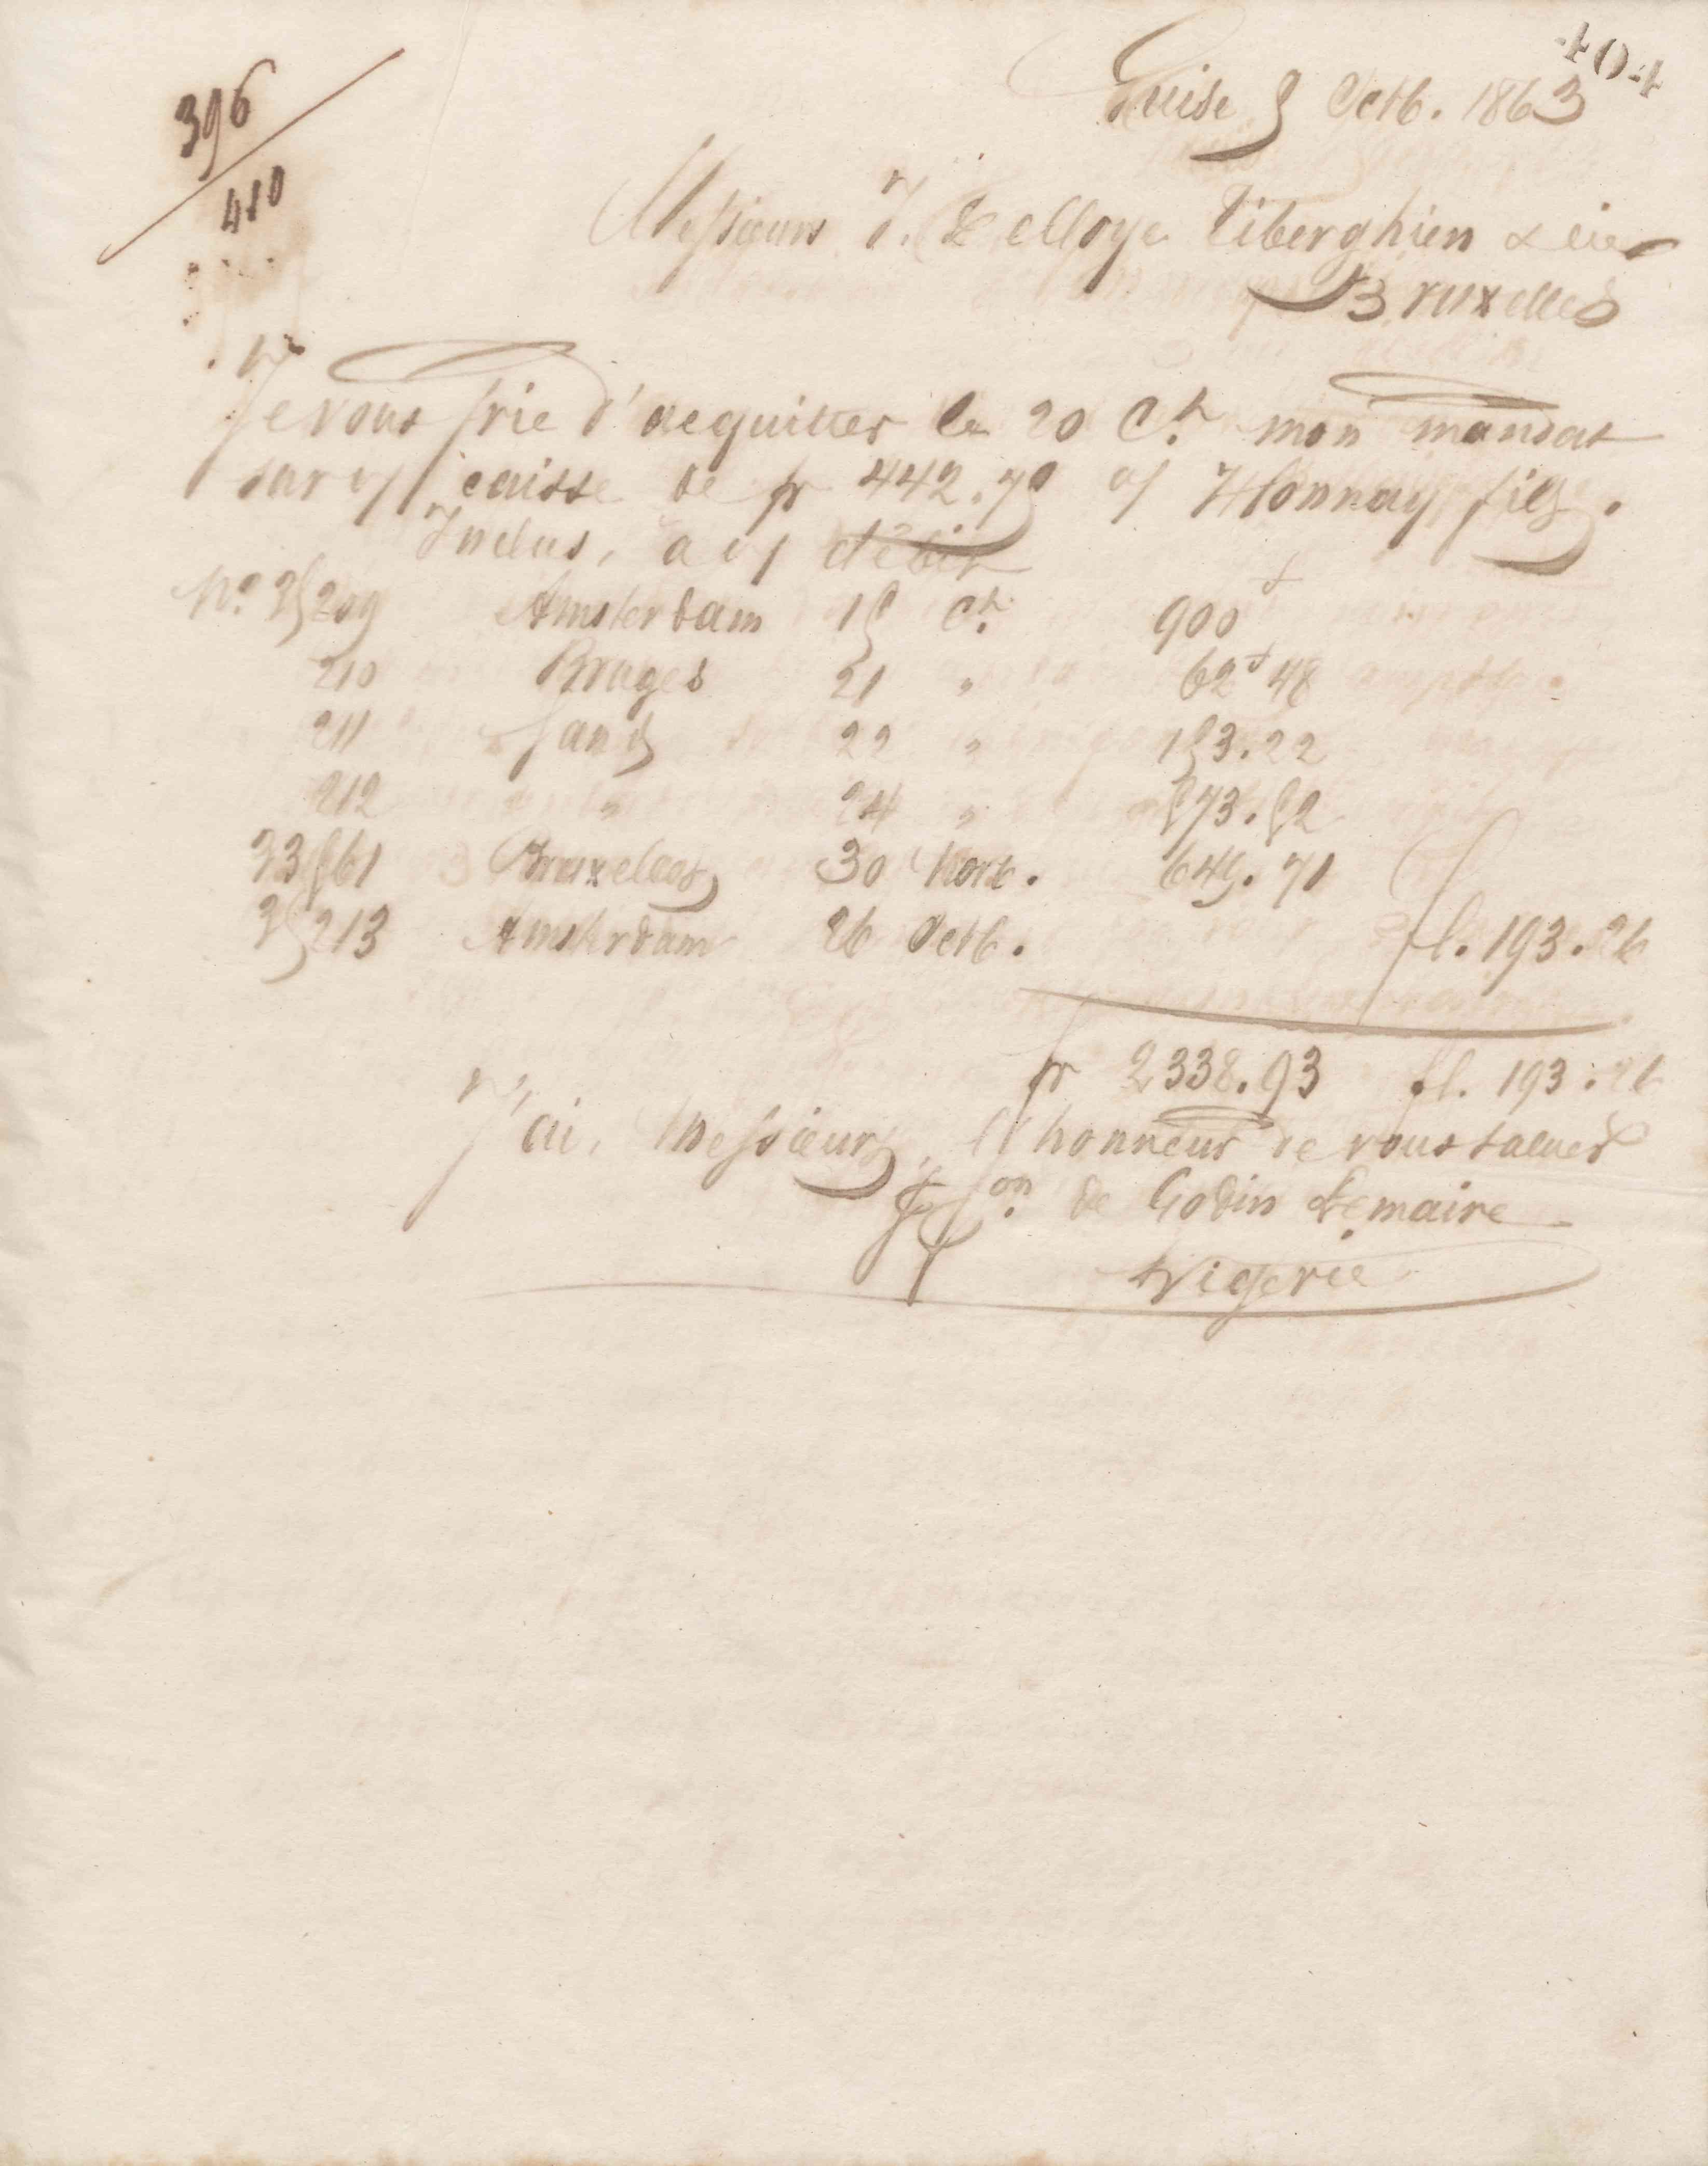 404
396
410
Guise 5 Octb. 1863
Messieurs J. Delloye Tiberghien & Cie
Bruxelles
Je vous prie d'acquitter le 20 Ct. mon mandat
sur v/ caisse de fr 442.75 o/ Honnay fils.
Inclus, a v/ débit
No. 35209 Amsterdam 15 Ct. 900
210 Bruges 21 " 62 48
211 Gand 22 " 153.22
212 " 24 " 573.52
33561 Bruxelles 30 Novb. 649.71
35213 Amsterdam 26 Octb. fl. 193.26
fr 2338.93 fl. 193.26
J'ai, Messieurs, l'honneur de vous saluer
Pon. de Godin Lemaire